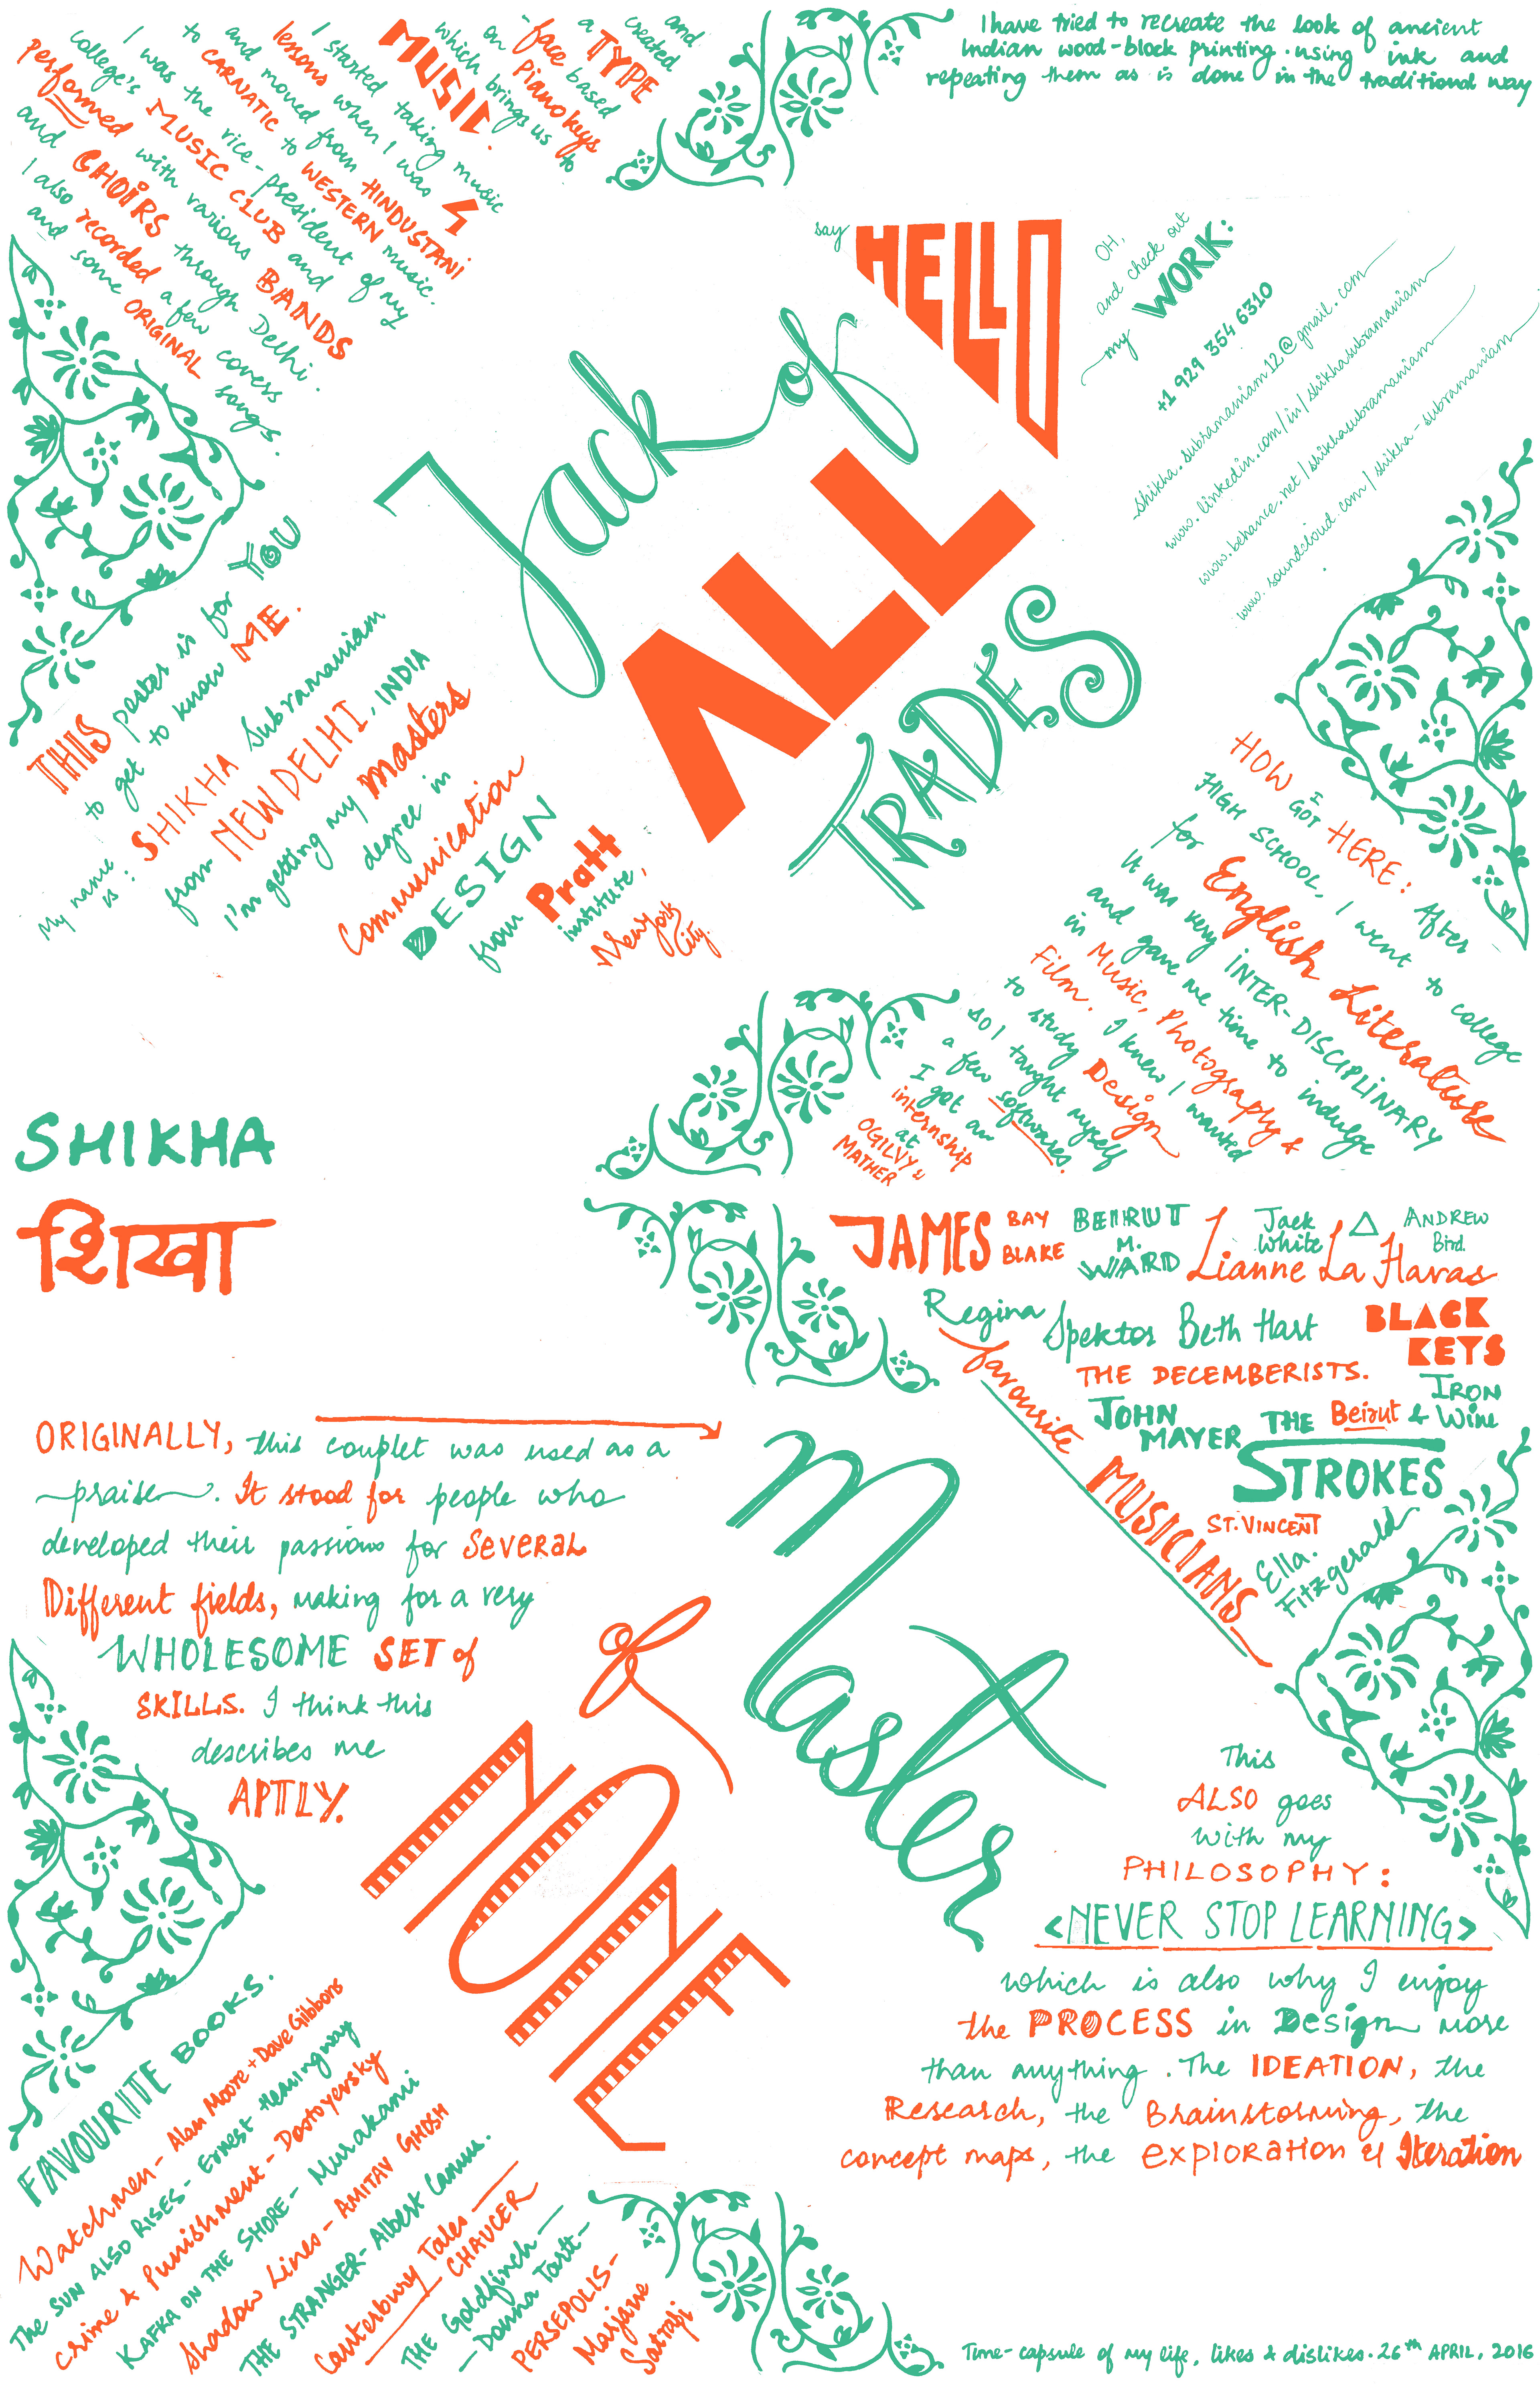 I have tried to recreate the look of ancient
Indian wood-block printing. using ink and
repeating them as is done in the traditional way
MUSIC.
I started taking music
lessons when I was 4
and moved from HINDUSTANI
to CARNATIC to WESTERN music.
I was the vice-president of my
college's MUSIC CLUB and
performed with various BANDS
and CHOIRS through Delhi.
I also recorded a few covers
and some ORIGINAL songs.
which brings us to
on Piano keys
'face based
a TYPE
created
and
say HELLO
OH,
and check out
my WORK:
+1 929 354 6310
shikha.subramaniam12@gmail.com
www.linkedin.com/in/shikhasubramaniam
www.behance.net/shikhasubramaniam
www.soundcloud.com/shikha-subramaniam
Jack of
ALL
TRADES
THIS poster is for YOU
to get to know ME.
My name is: SHIKHA Subramaniam
from NEW DELHI, INDIA
I'm getting my masters
degree in
Communication
DESIGN
from Pratt
institute,
New York
City.
HOW I GOT HERE: After
HIGH SCHOOL, I went to college
for English Literature
It was very INTER-DISCIPLINARY
and gave me time to indulge
in Music, Photography &
Film. I knew I wanted
to study Design
so I taught myself
a few softwares.
I got an
internship
at
OGILVY &
MATHER
SHIKHA
शिखा
JAMES BAY BLAKE
BEIRUT
M. WARD
Jack White
△
ANDREW Bird.
Lianne La Havas
Regina Spektor
Beth Hart
BLACK KEYS
THE DECEMBERISTS.
IRON & Wine
JOHN MAYER
THE Beirut
STROKES
ST. VINCENT
Ella. Fitzgerald
favourite MUSICIANS
ORIGINALLY, this couplet was used as a
praise. It stood for people who
developed their passions for Several
Different fields, making for a very
WHOLESOME SET of
SKILLS. I think this
describes me
APTLY.
Master
of
NONE
This
ALSO goes
with my
PHILOSOPHY:
<NEVER STOP LEARNING>
which is also why I enjoy
the PROCESS in Design more
than anything. The IDEATION, the
Research, the Brainstorming, the
concept maps, the exploration & Iteration
FAVOURITE BOOKS.
Watchmen - Alan Moore + Dave Gibbons
The SUN ALSO RISES - Ernest Hemingway
Crime & Punishment - Dostoyevsky
KAFKA ON THE SHORE - Murakami
Shadow Lines - AMITAV GHOSH
THE STRANGER - Albert Camus.
Canterbury Tales -
CHAUCER
THE Goldfinch -
- Donna Tartt -
PERSEPOLIS -
Marjane
Satrapi
Time-capsule of my life, likes & dislikes. 26th APRIL, 2016